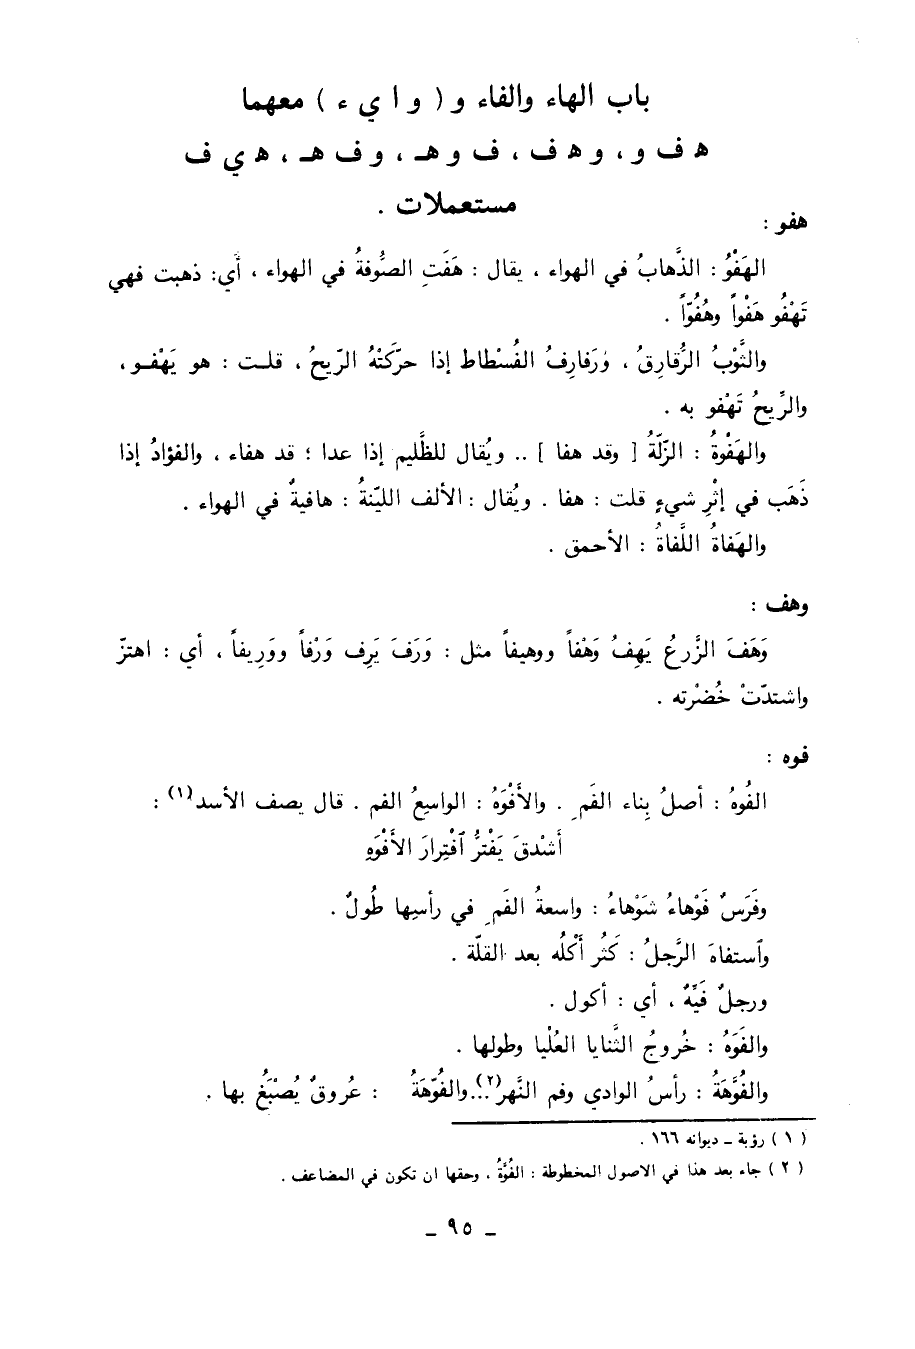 باب الهاء والفاء و ( و ا ي ء ) معهما
ه ف و ، و ه ف ، ف و هـ ، و ف هـ ، ه ي ف
مستعملات .
هفو :
الهَفْوُ : الذَّهابُ في الهواء ، يقال : هَفَتِ الصُّوفةُ في الهواء ، أي: ذهبت فهي
تَهْفُو هَفْواً وهُفُوّاً .
والثَّوْبُ الرُّقارِقُ ، وَرَفارِفُ الفُسْطاط إذا حرّكَتْهُ الرّيحُ ، قلت : هو يَهْفو ،
والرِّيحُ تَهْفو به .
والهَفْوةُ : الزّلّةُ [ وقد هفا ] .. ويُقال للظَّليم إذا عدا ؛ قد هفاء ، والفؤادُ إذا
ذَهَب في إثْرِ شيءٍ قلت : هفا . ويُقال : الألف الليّنةُ : هافيةٌ في الهواء .
والهَفاةُ اللَّفاةُ : الأحمق .
وهف :
وَهَفَ الزَّرعُ يَهِفُ وَهْفاً ووهيفاً مثل : وَرَفَ يَرِف وَرْفاً ووَرِيفاً ، أي : اهتزّ
واشتدّتْ خُضْرته .
فوه :
الفُوهُ : أصلُ بِناء الفَمِ . والأفْوَهُ : الواسِعُ الفم . قال يصف الأسد(١) :
أشْدقَ يَفْتَرُّ ٱفْتِرارَ الأفْوَهِ
وفَرَسٌ فَوْهاءُ شَوْهاءُ : واسعةُ الفَمِ في رأسِها طُولٌ .
وٱستفاهَ الرَّجلُ : كَثُر أكْلُه بعد القلّة .
ورجلٌ فَيِّهٌ ، أي : أكول .
والفَوَهُ : خُروجُ الثَّنايا العُلْيا وطولها .
والفُوَّهَةُ : رأسُ الوادي وفم النَّهر(٢)... والفُوّهَةُ : عُروقٌ يُصْبَغُ بها .
( ١ ) رؤبة ـ ديوانه ١٦٦ .
( ٢ ) جاء بعد هذا في الاصول المخطوطة : الفُوَّةُ ، وحقها ان تكون في المضاعف .
ـ ٩٥ ـ